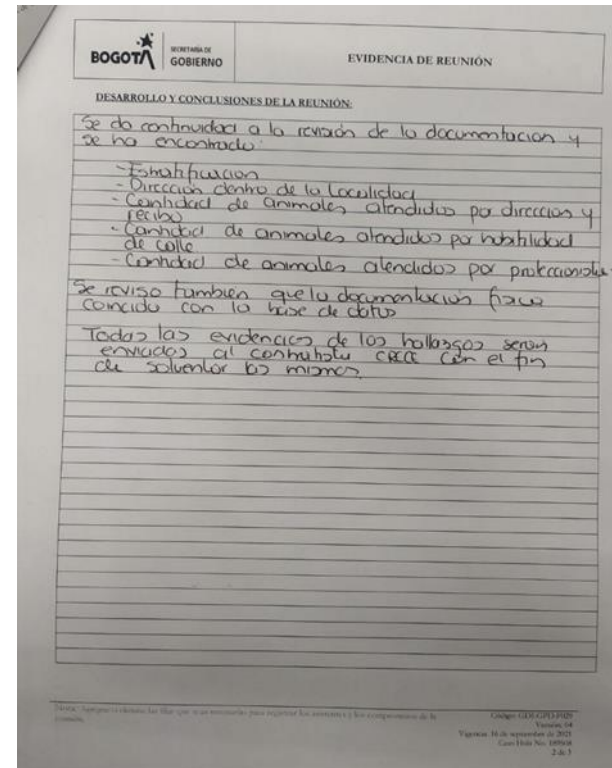 BOGOTÁ
SECRETARÍA DE
GOBIERNO
EVIDENCIA DE REUNIÓN
DESARROLLO Y CONCLUSIONES DE LA REUNIÓN:
Se da continuidad a la revisión de la documentacion y
se ha encontrado:
- Estratificacion
- Dirección dentro de la Localidad
- Cantidad de animales atendidos por dirección y
recibo
- Cantidad de animales atendidos por habitilidad
de calle
- Cantidad de animales atendidos por proteccionista.
Se reviso tambien que la documentación fisica
coincida con la base de datos
Todas las evidencias de los hallazgos seran
enviadas al contratista CRECE con el fin
de solventar los mismos.
Nota: Agregue o elimine las filas que sean necesarias para registrar los asistentes y los compromisos de la
reunión.
Código: GDI-GPD-F029
Versión: 04
Vigencia: 16 de septiembre de 2021
Caso Hola No.
2 de 3